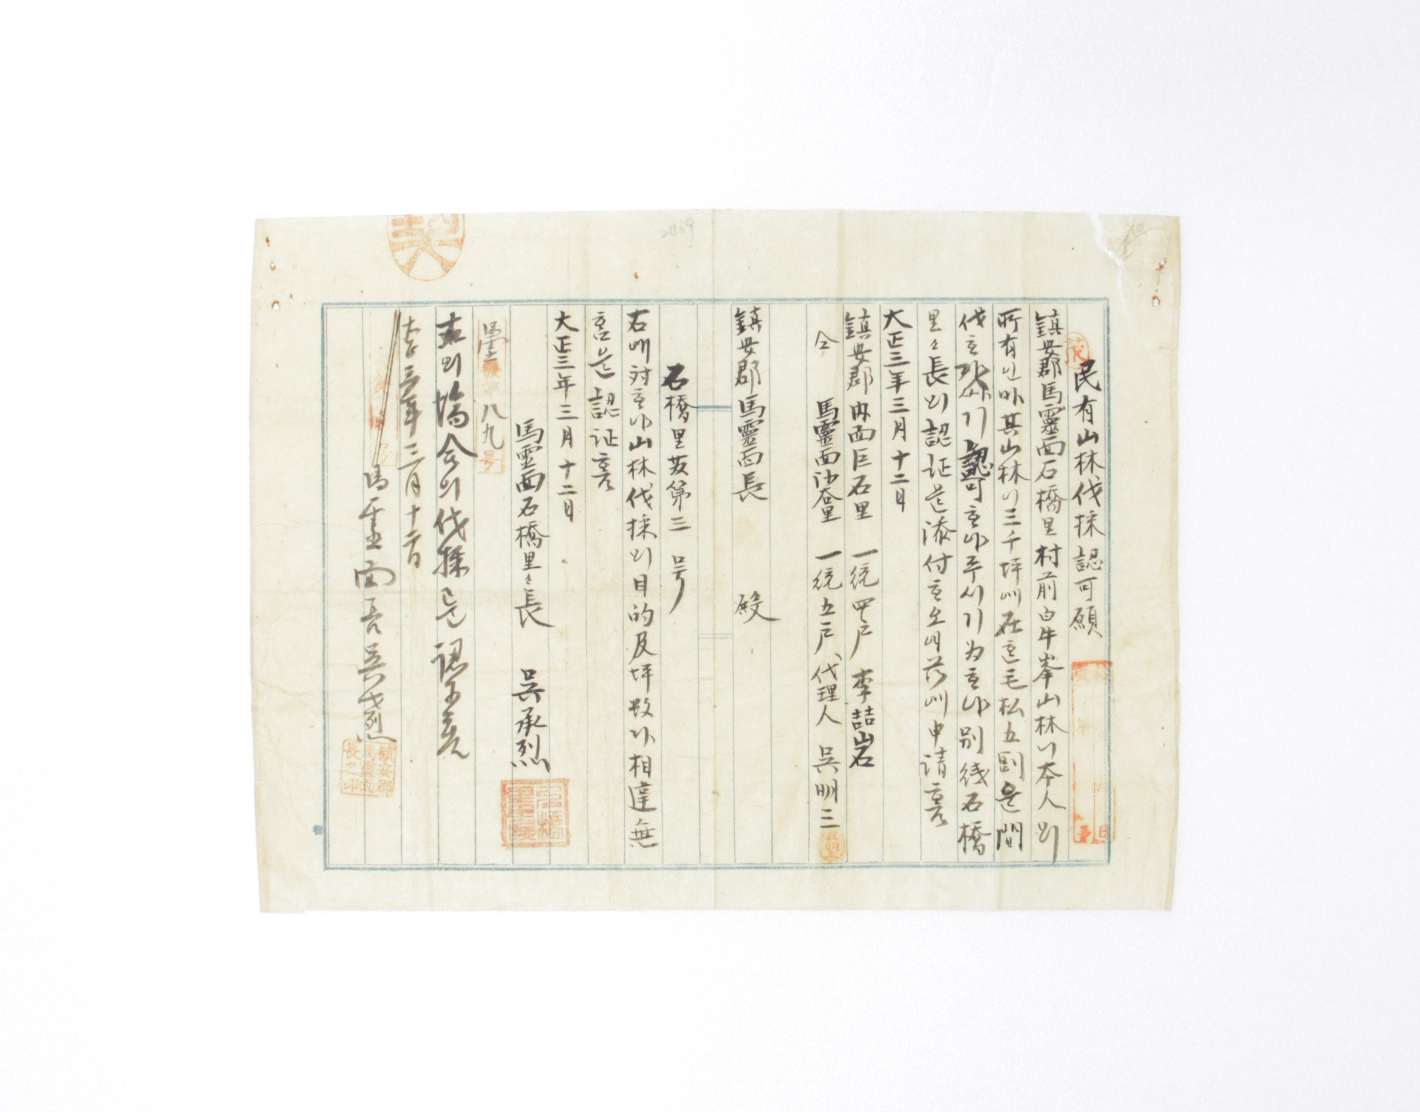 民有山林伐採認可願
鎭安郡馬靈面石橋里村前白牛峯山林이本人의
所有인바其山林이三千坪에在한毛松五割을間
伐하기認可하야주시기為하야別紙石橋
里々長의認証을添付하오며玆에申請홈
大正三年三月十二日
鎭安郡內面巨石里 一統四戶 李喆岩
仝 馬靈面沙谷里 一統五戶、代理人 吳明三
鎭安郡馬靈面長 殿
石橋里發第三 号
右에対하야山林伐採의目的及坪数가相違無
홈을認证홈
大正三年三月十二日
馬靈面石橋里々長 吳承烈
八九号
右의境合의伐採을認홈
三年三月十二日
馬靈面長吳